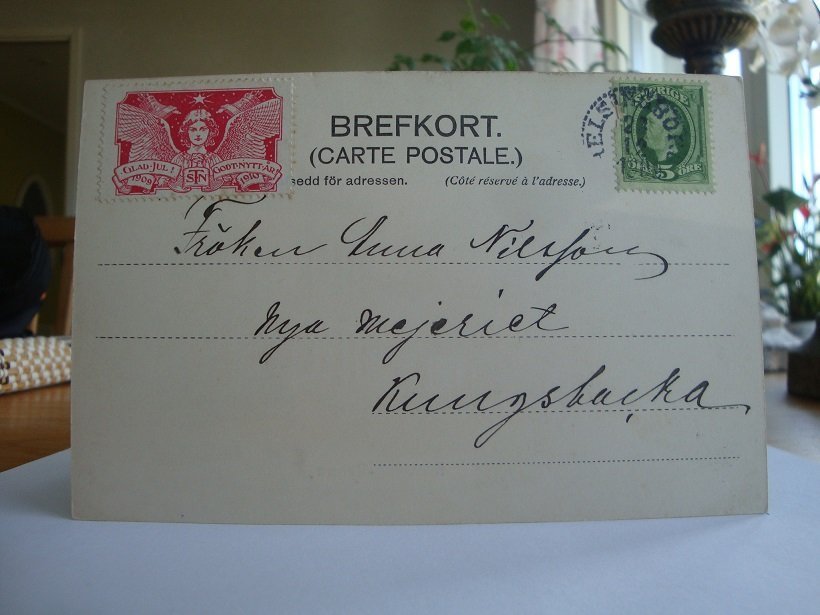 GLAD·JUL! GODT·NYTT·ÅR
1909 STN 1910
BREFKORT.
(CARTE POSTALE.)
sedd för adressen. (Côté réservé à l'adresse.)
SVERIGE
5 ÖRE
Fröken Anna Nilsson
Nya Mejeriet
Kungsbacka